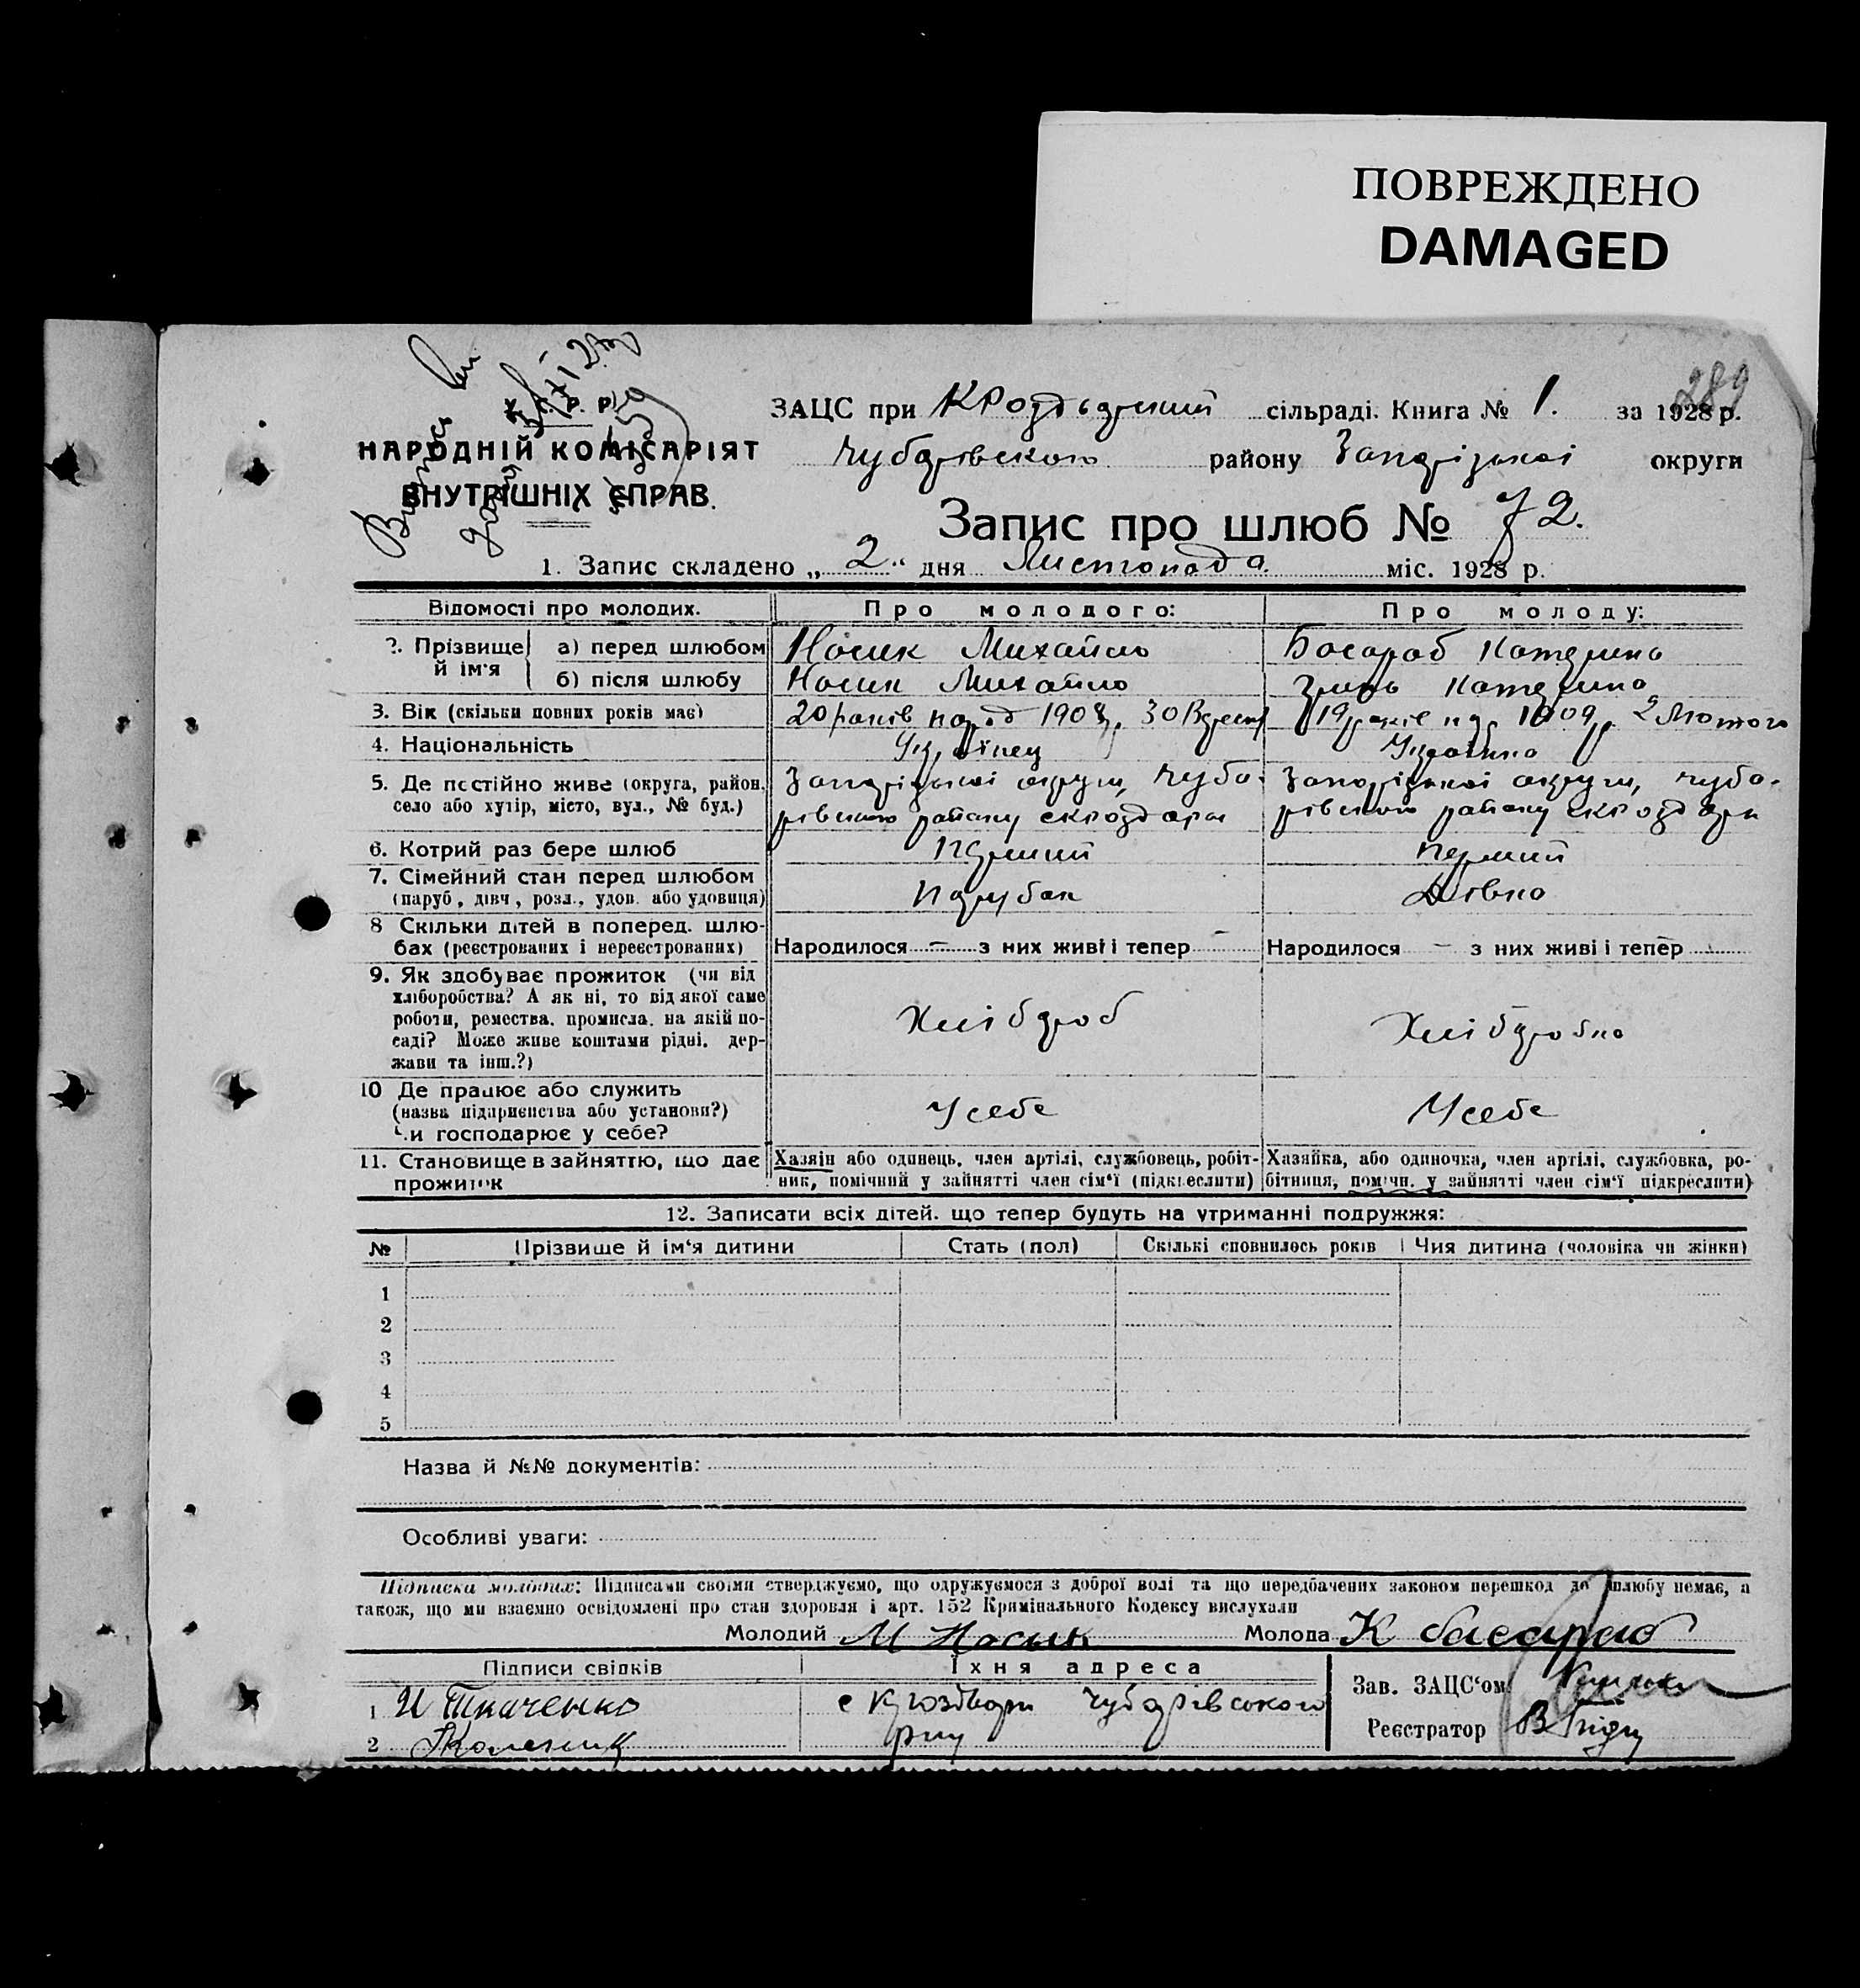 ПОВРЕЖДЕНО
DAMAGED
289
У. С. Р. Р.
НАРОДНІЙ КОМІСАРІЯТ
ВНУТРІШНІХ СПРАВ.
ЗАЦС при сільраді. Книга № 1. за 1928 р.
Чубарівського району Запорізької округи
Запис про шлюб № 72.
1. Запис складено „ 2 " дня Листопада міс. 1928 р.
Відомості про молодих. Про молодого: Про молоду:
2. Прізвище й ім'я а) перед шлюбом Носик Михайло Басараб Катерина
б) після шлюбу Носик Михайло Катерина
3. Вік (скільки повних років має) 20 років народ 1908 р. 30 Вересня 19 років нар. 1909 р. 2 Лютого
4. Національність Українец Українка
5. Де постійно живе (округа, район, Запорізької округи, Чуба- Запорізької округи, Чуба-
село або хутір, місто, вул., № буд.) рівського району рівського району
6. Котрий раз бере шлюб Перший Перший
7. Сімейний стан перед шлюбом Парубок Дівка
(паруб., дівч., розл., удов. або удовиця)
8 Скільки дітей в поперед. шлю-
бах (реєстрованих і нереєстрованих) Народилося – з них живі і тепер – Народилося – з них живі і тепер –
9. Як здобуває прожиток (чи від
хліборобства? А як ні, то від якої саме
роботи, ремества, промисла, на якій по- Хлібороб Хліборобка
саді? Може живе коштами рідні, дер-
жави та інш.?)
10 Де працює або служить
(назва підприємства або установи?) У себе У себе
Чи господарює у себе?
11. Становище в зайняттю, що дає Хазяїн або одинець, член артілі, службовець, робіт- Хазяйка, або одиночка, член артілі, службовка, ро-
прожиток ник, помічний у зайнятті член сім'ї (підкреслити) бітниця, помічн. у зайнятті член сім'ї підкреслити)
12. Записати всіх дітей, що тепер будуть на утриманні подружжя:
№ Прізвище й ім'я дитини Стать (пол) Скількі сповнилось років Чия дитина (чоловіка чи жінки)
1
2
3
4
5
Назва й №№ документів:
Особливі уваги:
Підписка молодих: Підписами своїми стверджуємо, що одружуємося з доброї волі та що передбачених законом перешкод до шлюбу немає, а
також, що ми взаємно освідомлені про стан здоровля і арт. 152 Кримінального Кодексу вислухали
Молодий М Носик Молода К басараб
Підписи свідків Їхня адреса Зав. ЗАЦС'ом
1 И Ткаченко с Чубарівського
2 Колесник р-ну Реєстратор